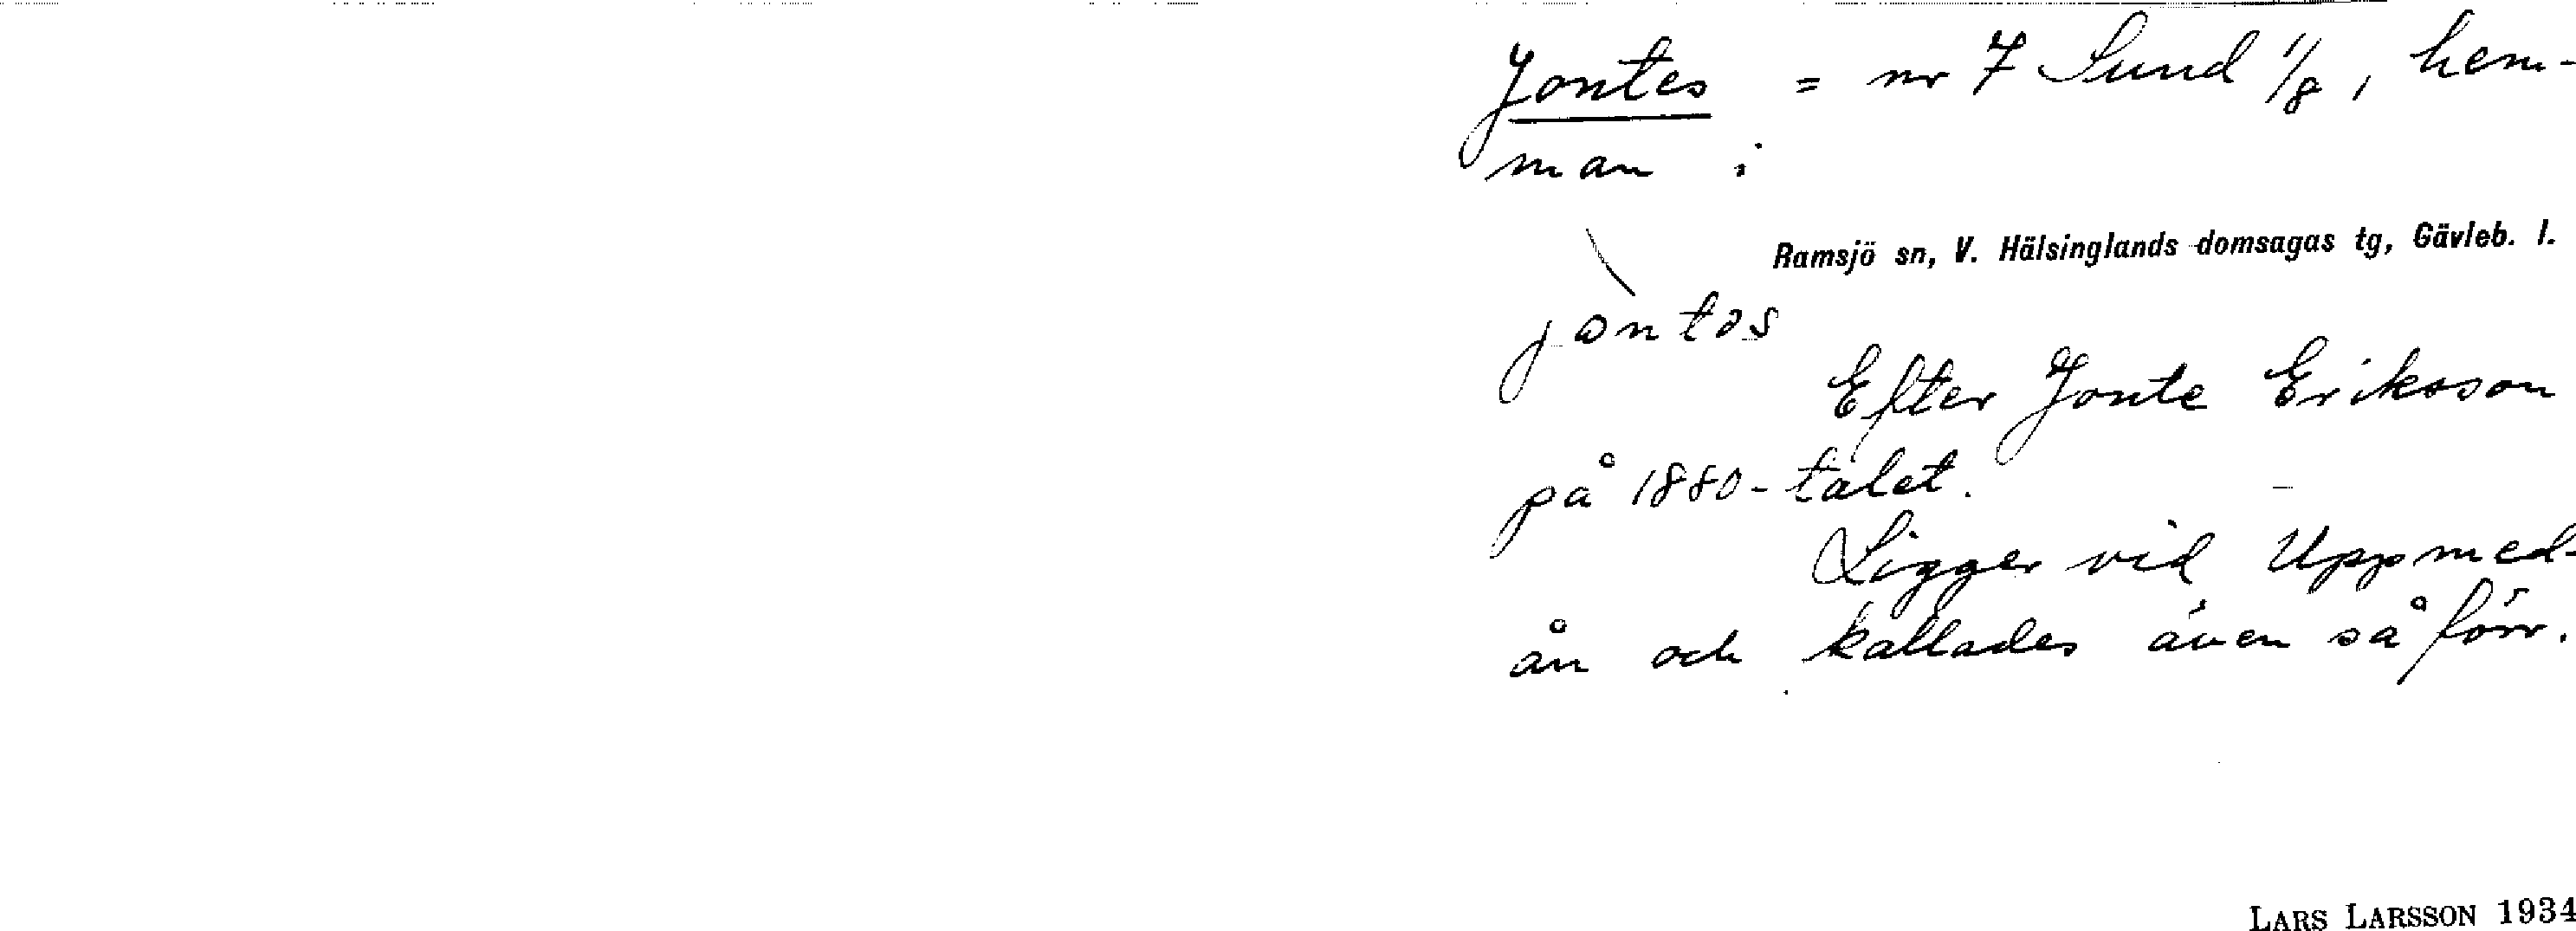 Jontes = nr 7 Sund 1/8, hem-
man i
Ramsjö sn, V. Hälsinglands domsagas tg, Gävleb. l.
j̀ontəs
Efter Jonte Eriksson
på 1880-talet.
Ligger vid Uppmed-
ån och kallades även så förr.
LARS LARSSON 1934